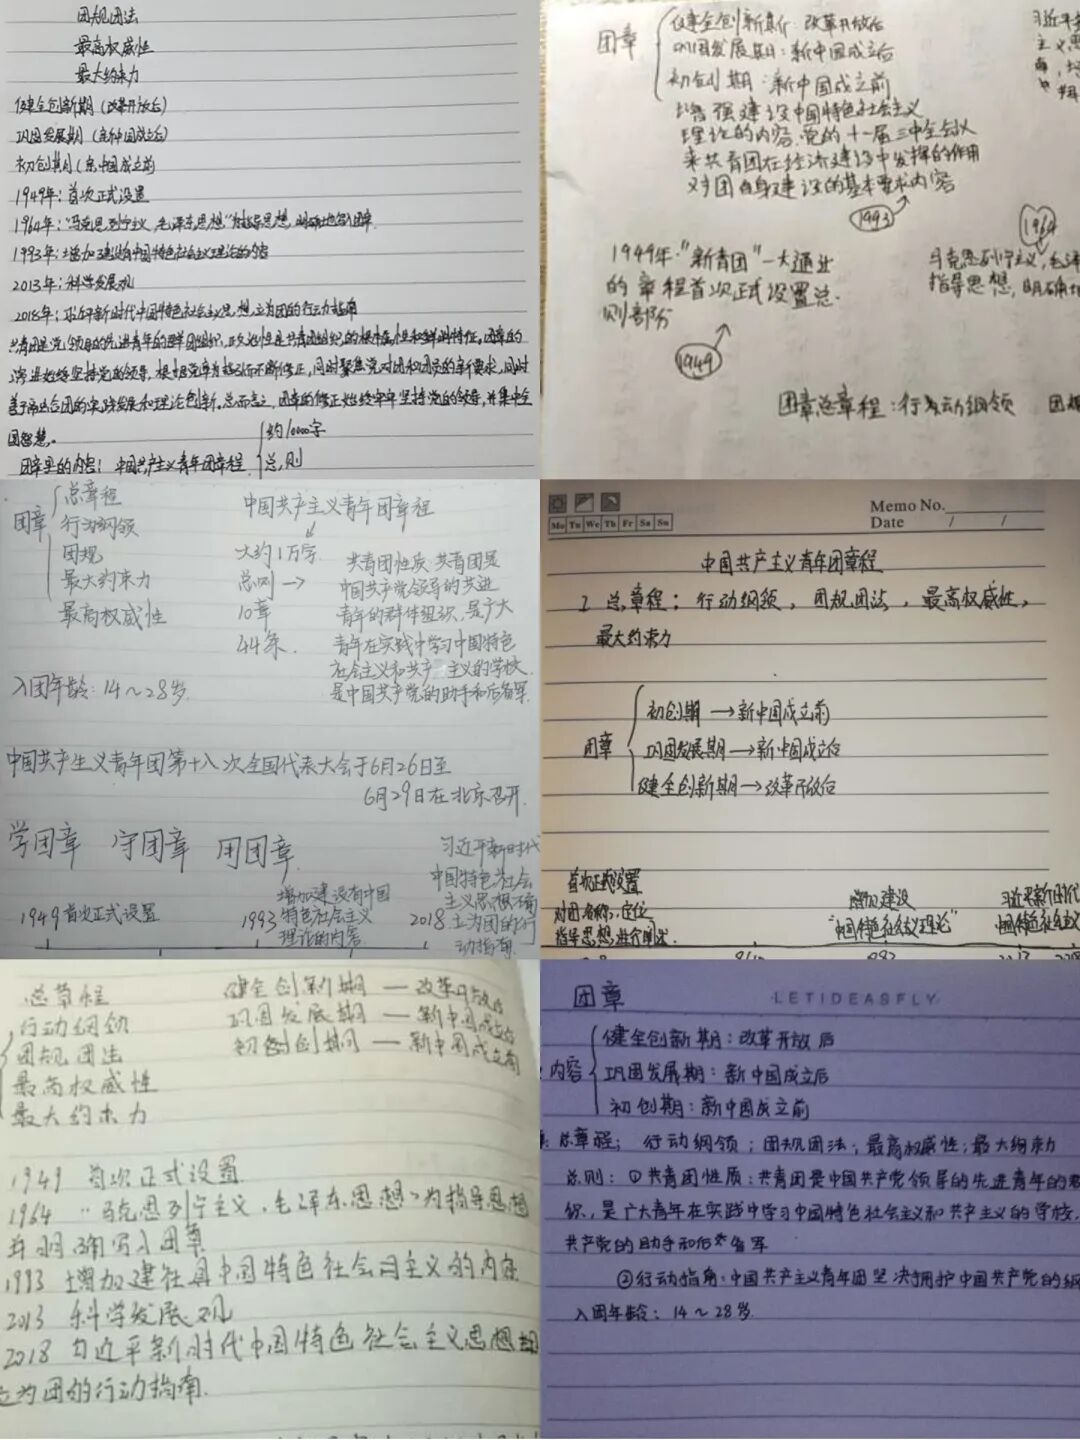 团规团法
最高权威性
最大约束力
健全创新期（改革开放后）
巩固发展期（新中国成立后）
初创期（新中国成立前
1949年：首次正式设置
1964年："马克思列宁主义、毛泽东思想"为指导思想，明确地写入团章.
1993年：增加建设有中国特色社会主义理论的内容
2013年：科学发展观
2018年：习近平新时代中国特色社会主义思想，立为团的行动指南
共青团是党领导的先进青年的群团组织，政治性是共青团组织的根本属性和鲜明特征。团章的
演进始终坚持党的领导，根据党章为而不断修正，同时聚焦党对团和团员的新要求，同时
善于团的实践发展和理论创新。总而言之，团章的修正始终牢牢坚持党的领导，并集中全
团智慧。
团章里的内容：中国共产主义青年团章程
约10000字
总，则
团章
健全创新期：改革开放后
巩固发展期：新中国成立后
初创期：新中国成立前
增强建设中国特色社会主义
理论的内容.党的十一届三中全会以
来共青团在经济建设中发挥的作用
对团自身建设的基本要求内容
1993
1964
1949年."新青团"一大通过
的章程首次正式设置总.
则部分
1949
马克思列宁主义，毛泽
指导思想，明确地
习近平
主义思
团章总章程：行动纲领 团规
团章
总章程
行动纲领
团规
最大约束力
最高权威性
中国共产主义青年团章程
大约1万字
总则 →
10章
44条.
共青团性质：共青团是
中国共产党领导的先进
青年的群体组织，是广大
青年在实践中学习中国特色
社会主义和共产主义的学校.
是中国共产党的助手和后备军.
入团年龄：14～28岁.
中国共产主义青年团第十八次全国代表大会于6月26日至
6月29日在北京召开.
学团章 守团章 用团章
1949 首次正式设置
1993 增加建设有中国
特色社会主义
理论的内容
习近平新时代
中国特色社会
主义思想
2018 立为团的行
动指南.
Mo Tu We Th Fr Sa Su
Memo No.
Date / /
中国共产主义青年团章程
总章程：行动纲领，团规团法，最高权威性，
最大约束力
团章
初创期→新中国成立前
巩固发展期→新中国成立后
健全创新期→改革开放后
首次正式设置
对团名称、定位
指导思想进行阐述.
增加建设
"中国特色社会主义理论"
习近平新时代
中国特色社会主义
总章程
行动纲领
团规团法
最高权威性
最大约束力
健全创新期 — 改革开放后
巩固发展期 — 新中国成立后
初创期 — 新中国成立前
1949 首次正式设置
1964 "马克思列宁主义，毛泽东思想"为指导思想
并明确写入团章
1993 增加建社具中国特色社会主义的内容
2013 科学发展观
2018 习近平新时代中国特色社会主义思想
立为团的行动指南.
团章
LETIDEASFLY
内容
健全创新期：改革开放后
巩固发展期：新中国成立后
初创期：新中国成立前
总章程；行动纲领；团规团法；最高权威性；最大约束力
总则：①共青团性质：共青团是中国共产党领导的先进青年的群
织，是广大青年在实践中学习中国特色社会主义和共产主义的学校，
共产党的助手和后备军
②行动指南：中国共产主义青年团坚决拥护中国共产党的纲
入团年龄：14～28岁